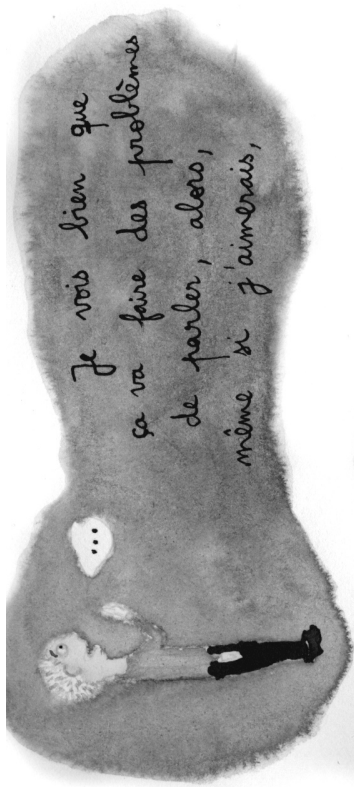 Je vois bien que
ça va faire des problèmes
de parler, alors,
même si j'aimerais,
...